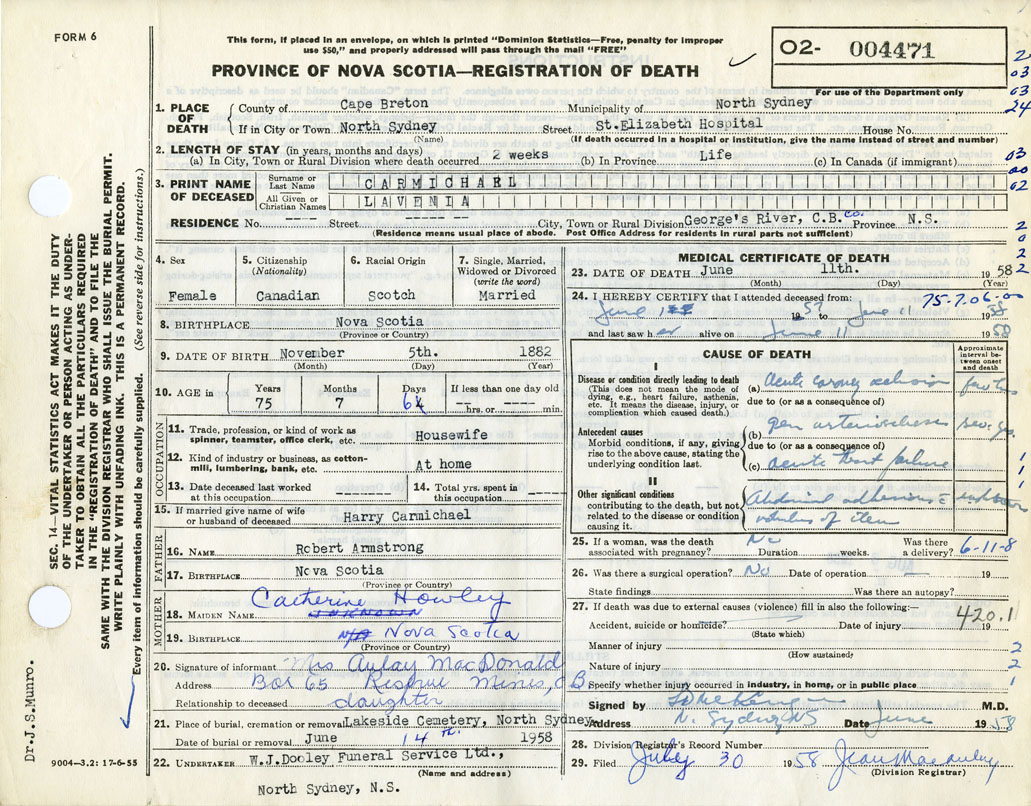 FORM 6
This form, if placed in an envelope, on which is printed "Dominion Statistics—Free, penalty for improper
use $50," and properly addressed will pass through the mail "FREE"
O2- 004471
For use of the Department only
PROVINCE OF NOVA SCOTIA—REGISTRATION OF DEATH
1. PLACE OF DEATH
County of Cape Breton Municipality of North Sydney
If in City or Town North Sydney Street St.Elizabeth Hospital House No.
(Name) (If death occurred in a hospital or institution, give the name instead of street and number)
2. LENGTH OF STAY (in years, months and days)
(a) In City, Town or Rural Division where death occurred 2 weeks (b) In Province Life (c) In Canada (if immigrant)
3. PRINT NAME OF DECEASED
Surname or Last Name CARMICHAEL
All Given or Christian Names LAVENIA
RESIDENCE No. ---- Street ----- -- City, Town or Rural Division George's River, C.B. Co. Province N.S.
(Residence means usual place of abode. Post Office Address for residents in rural parts not sufficient)
4. Sex
Female
5. Citizenship
(Nationality)
Canadian
6. Racial Origin
Scotch
7. Single, Married,
Widowed or Divorced
(write the word)
Married
8. BIRTHPLACE Nova Scotia
(Province or Country)
9. DATE OF BIRTH November 5th. 1882
(Month) (Day) (Year)
10. AGE in
Years Months Days If less than one day old
75 7 6 hrs. or min.
OCCUPATION
11. Trade, profession, or kind of work as
spinner, teamster, office clerk, etc. Housewife
12. Kind of industry or business, as cotton-
mill, lumbering, bank, etc. At home
13. Date deceased last worked
at this occupation
14. Total yrs. spent in
this occupation
15. If married give name of wife
or husband of deceased Harry Carmichael
FATHER
16. NAME Robert Armstrong
17. BIRTHPLACE Nova Scotia
(Province or Country)
MOTHER
18. MAIDEN NAME Catherine Howley
UNKNOWN
19. BIRTHPLACE Nova Scotia
(Province or Country)
20. Signature of informant Mrs Aulay MacDonald
Address Box 65 Reserve Mines, C B
Relationship to deceased daughter
21. Place of burial, cremation or removal Lakeside Cemetery, North Sydney
Date of burial or removal June 14th. 1958
22. UNDERTAKER W.J.Dooley Funeral Service Ltd.,
(Name and address)
North Sydney, N.S.
MEDICAL CERTIFICATE OF DEATH
23. DATE OF DEATH June 11th. 1958
(Month) (Day) (Year)
24. I HEREBY CERTIFY that I attended deceased from: 75-7.06-0
June 1957 to June 11 1958
and last saw her alive on June 11 1958
CAUSE OF DEATH
Approximate
interval be-
tween onset
and death
I
Disease or condition directly leading to death
(This does not mean the mode of
dying, e.g., heart failure, asthenia,
etc. It means the disease, injury, or
complication which caused death.)
(a) Acute coronary occlusion few hrs
due to (or as a consequence of)
Antecedent causes
Morbid conditions, if any, giving
rise to the above cause, stating the
underlying condition last.
(b) gen arteriosclerosis sev. yrs.
due to (or as a consequence of)
(c) acute heart failure
II
Other significant conditions
contributing to the death, but not
related to the disease or condition
causing it.
Abdominal adhesions
volvulus of ileum
25. If a woman, was the death
associated with pregnancy? No Duration weeks. Was there
a delivery? 6-11-8
26. Was there a surgical operation? No Date of operation — 19
State findings Was there an autopsy?
27. If death was due to external causes (violence) fill in also the following:—
420.1
Accident, suicide or homicide? Date of injury 19
(State which)
Manner of injury
(How sustained)
Nature of injury
Specify whether injury occurred in industry, in home, or in public place
Signed by M.D.
Address N. Sydney NS Date June 1958
28. Division Registrar's Record Number
29. Filed July 30 1958 Jean Macaulay
(Division Registrar)
SEC. 14—VITAL STATISTICS ACT MAKES IT THE DUTY
OF THE UNDERTAKER OR PERSON ACTING AS UNDER-
TAKER TO OBTAIN ALL THE PARTICULARS REQUIRED
IN THE "REGISTRATION OF DEATH" AND TO FILE THE
SAME WITH THE DIVISION REGISTRAR WHO SHALL ISSUE THE BURIAL PERMIT.
WRITE PLAINLY WITH UNFADING INK. THIS IS A PERMANENT RECORD.
Every item of information should be carefully supplied. (See reverse side for instructions.)
Dr.J.S.Munro.
9004—3.2: 17-6-55
2
03
03
24
03
00
02
2
0
2
2
1
1
1
2
2
1